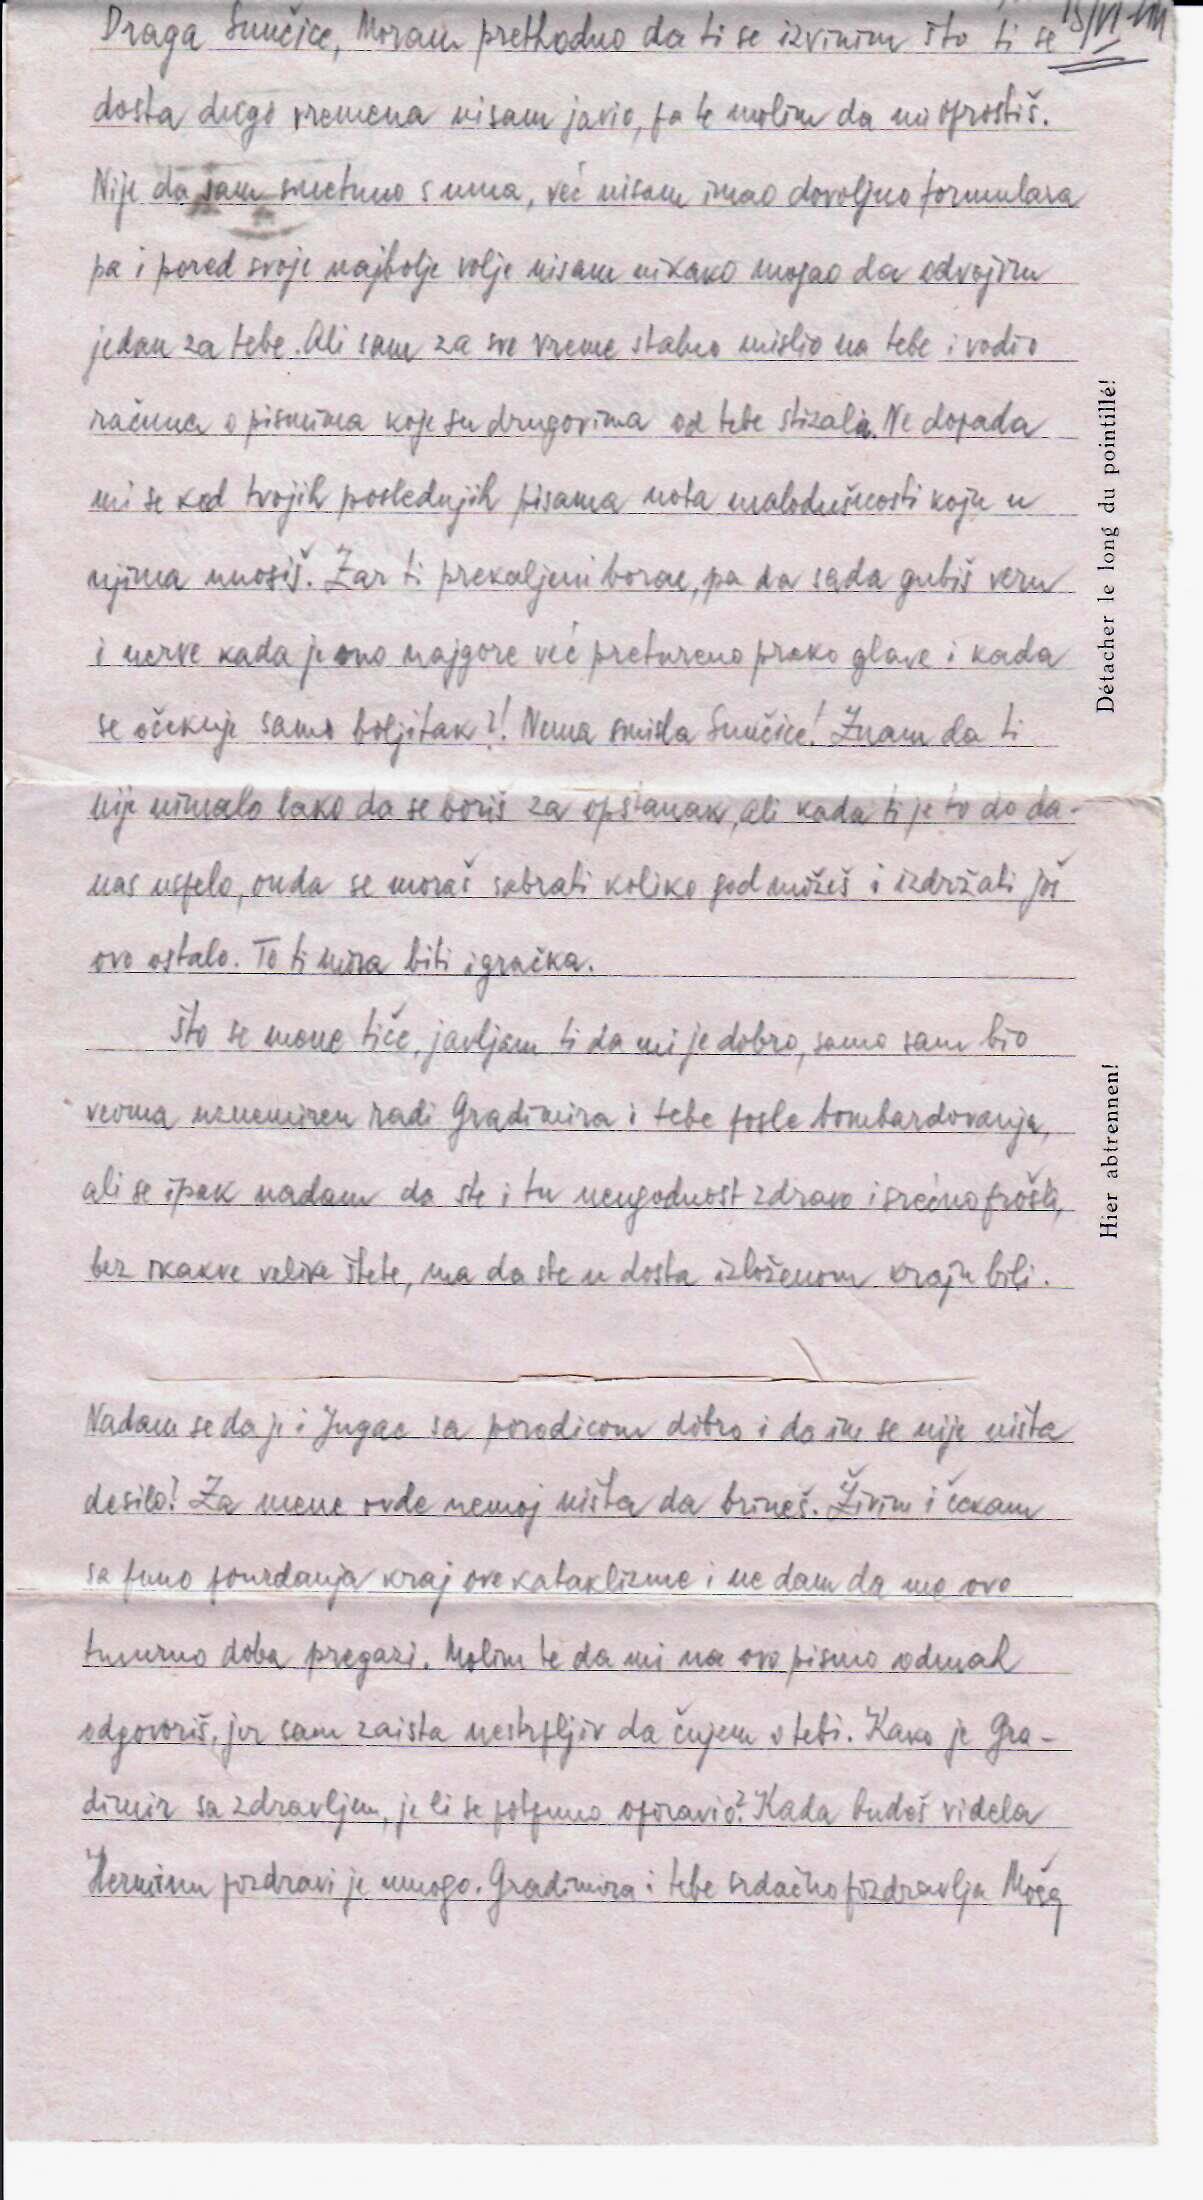 Draga Sunčice, Moram prethodno da ti se izvinim što ti se
dosta dugo vremena nisam javio, pa te molim da mi oprostiš.
Nije da sam smetnuo s uma, već nisam imao dovoljno formulara
pa i pored svoje najbolje volje nisam nikako mogao da odvojim
jedan za tebe. Ali sam za sve vreme stalno mislio na tebe i vodio
računa o pismima koje su drugovima od tebe stizala. Ne dopada
mi se kod tvojih poslednjih pisama nota malodušnosti koju u
njima unosiš. Zar ti prekaljeni borac, pa da sada gubiš veru
i nerve kada je ono najgore već pretureno preko glave i kada
se očekuje samo boljitak?! Nema smisla Sunčice! Znam da ti
nije nimalo lako da se boriš za opstanak, ali kada ti je to do da-
nas uspelo, onda se moraš sabrati koliko god možeš i izdržati još
ovo ostalo. To ti mora biti igračka.
Što se mene tiče, javljam ti da mi je dobro, samo sam bio
veoma uznemiren radi Gradimira i tebe posle bombardovanja,
ali se ipak nadam da ste i tu neugodnost zdravo i srećno prošli,
bez ikakve velike štete, ma da ste u dosta izloženom kraju bili.
Nadam se da je i Jugac sa porodicom dobro i da im se nije ništa
desilo? Za mene ovde nemoj ništa da brineš. Živim i čekam
sa puno pouzdanja kraj ove kataklizme i ne dam da me ovo
tmurno doba pregazi. Molim te da mi na ovo pismo odmah
odgovoriš, jer sam zaista nestrpljiv da čujem o tebi. Kako je Gra-
dimir sa zdravljem, je li se potpuno oporavio? Kada budeš videla
Herminu pozdravi je mnogo. Gradimira i tebe srdačno pozdravlja Moša
Détacher le long du pointillé!
Hier abtrennen!